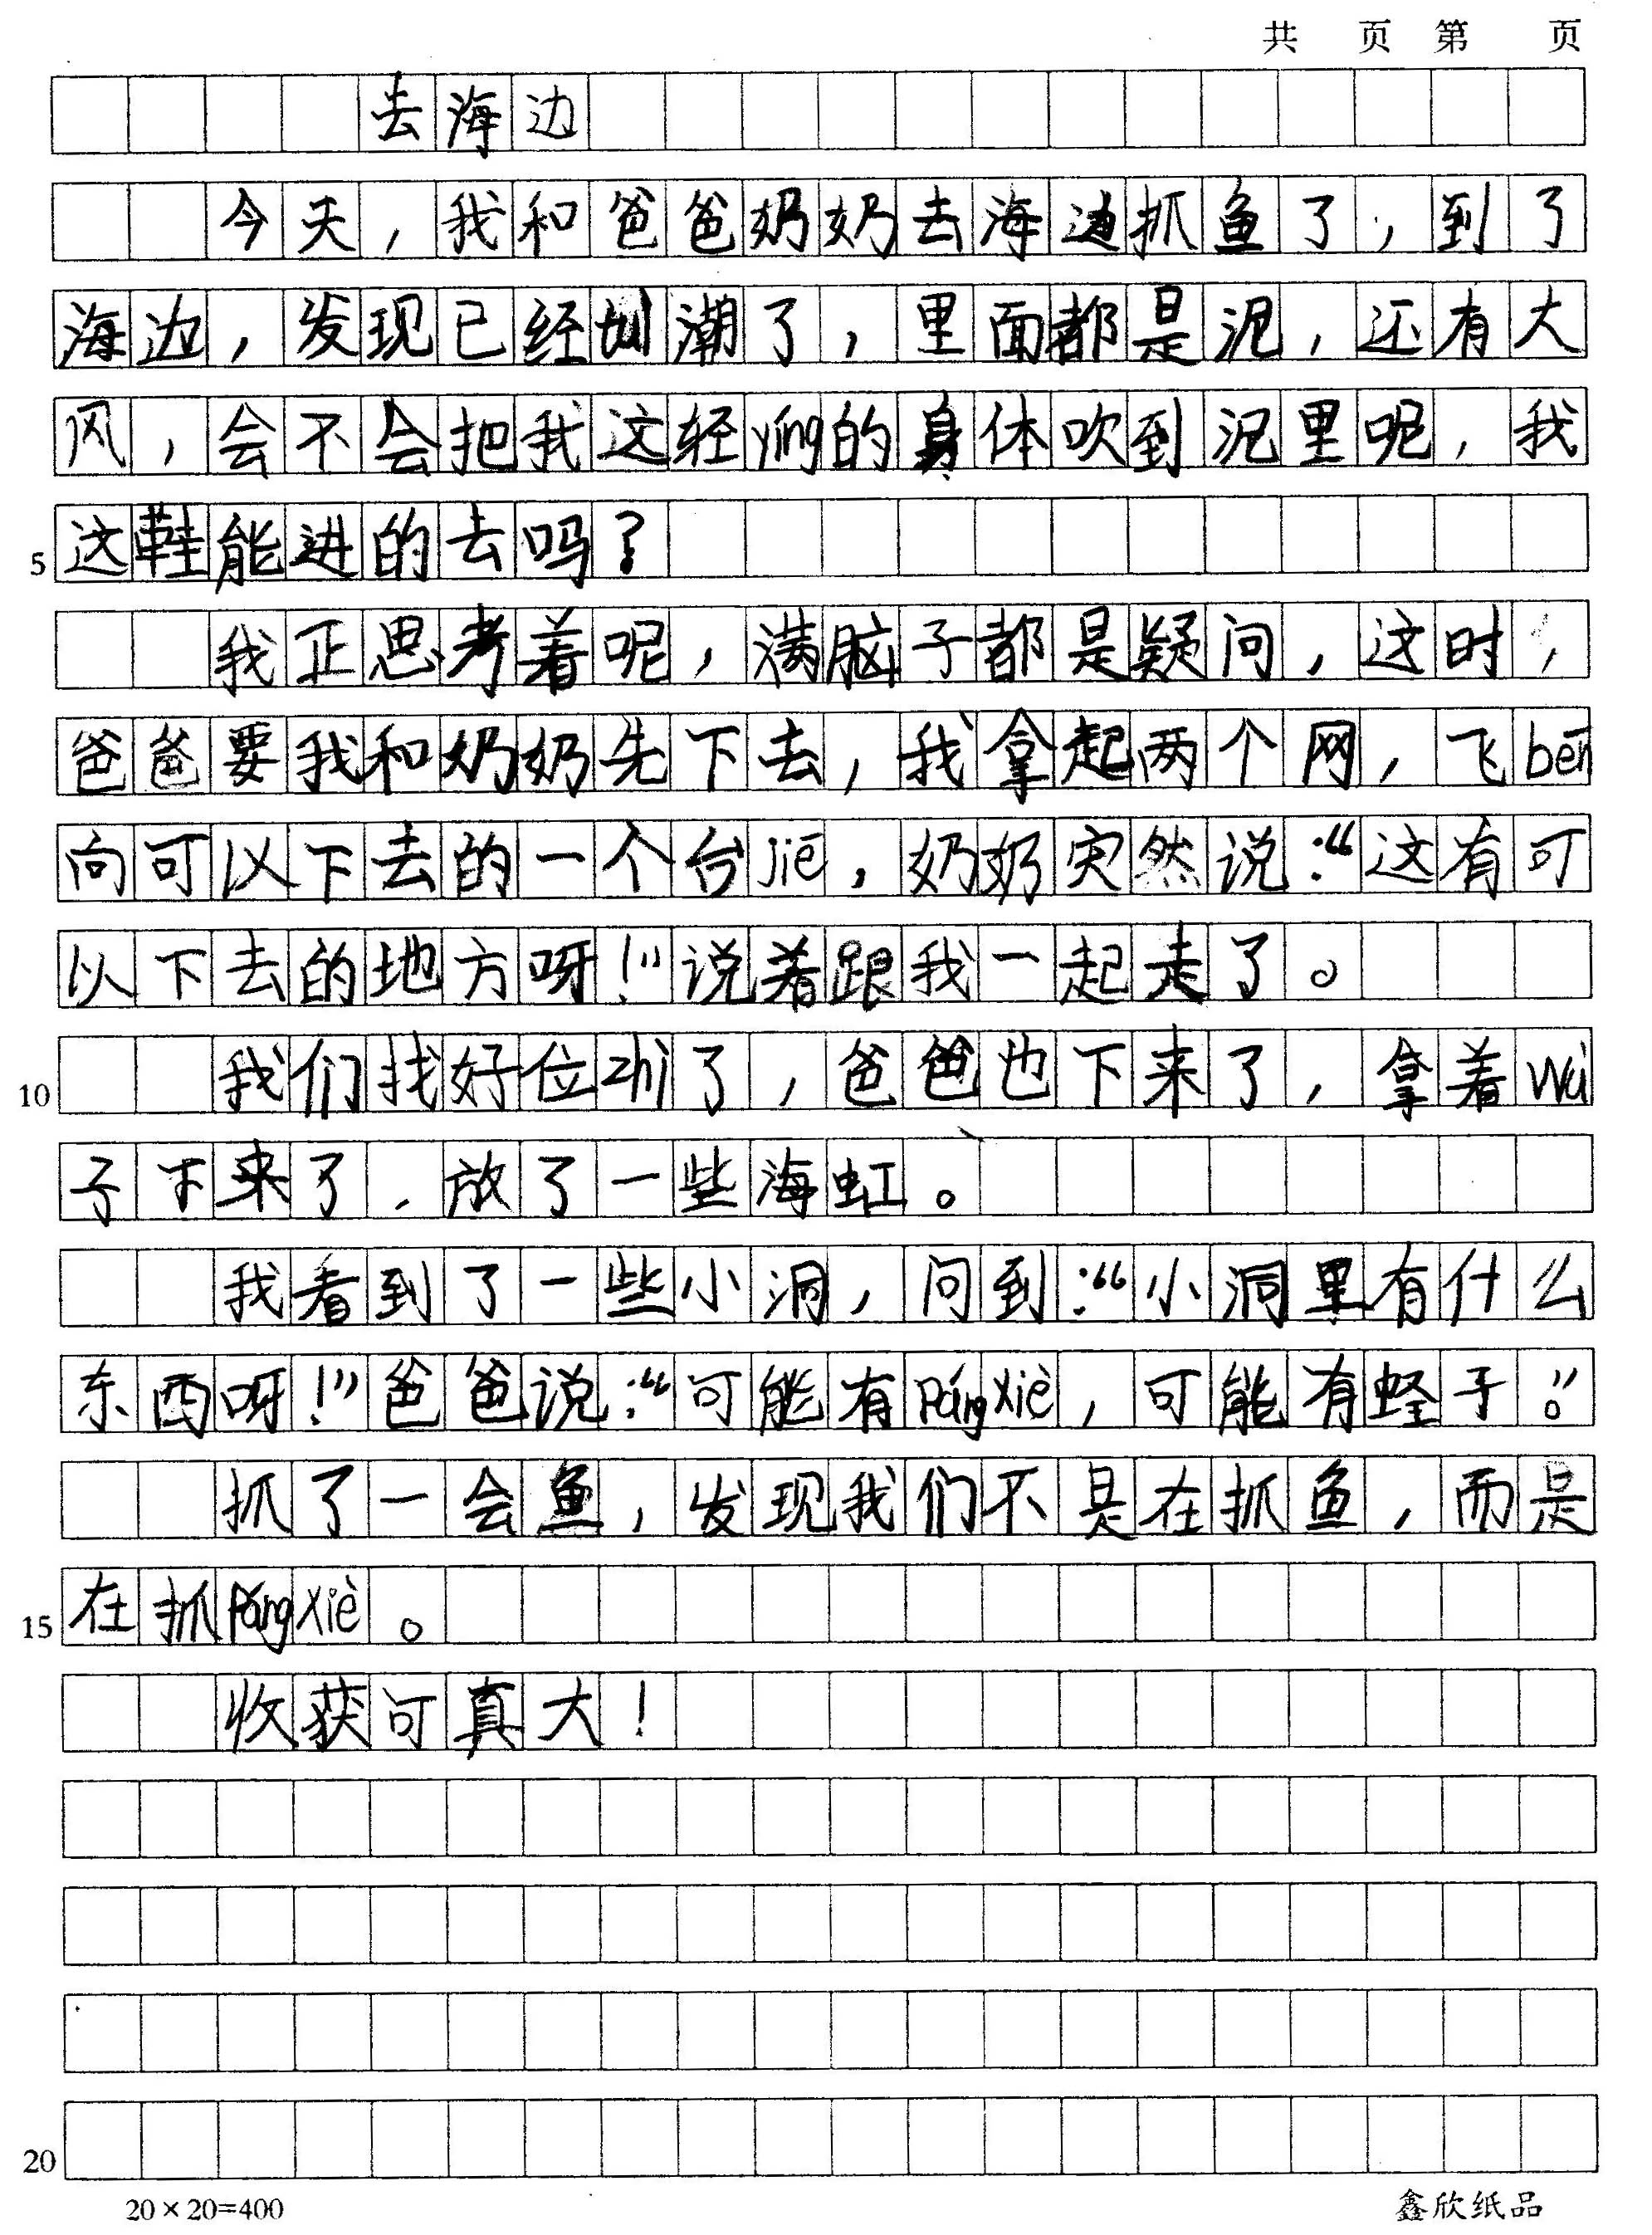 共 页 第 页
去海边
今天，我和爸爸奶奶去海边抓鱼了，到了
海边，发现已经潮了，里面都是泥，还有大
风，会不会把我这轻yíng的身体吹到泥里呢，我
5 这鞋能进的去吗？
我正思考着呢，满脑子都是疑问，这时，
爸爸要我和奶奶先下去，我拿起两个网，飞bēn
向可以下去的一个台jiē，奶奶突然说：“这有可
以下去的地方呀！”说着跟我一起走了。
10 我们找好位zhì了，爸爸也下来了，拿着wǔ
子下来了，放了一些海虹。
我看到了一些小洞，问到：“小洞里有什么
东西呀！”爸爸说：“可能有PángXiè，可能有蛏子。”
抓了一会鱼，发现我们不是在抓鱼，而是
15 在抓PángXiè。
收获可真大！
20
20×20=400 鑫欣纸品